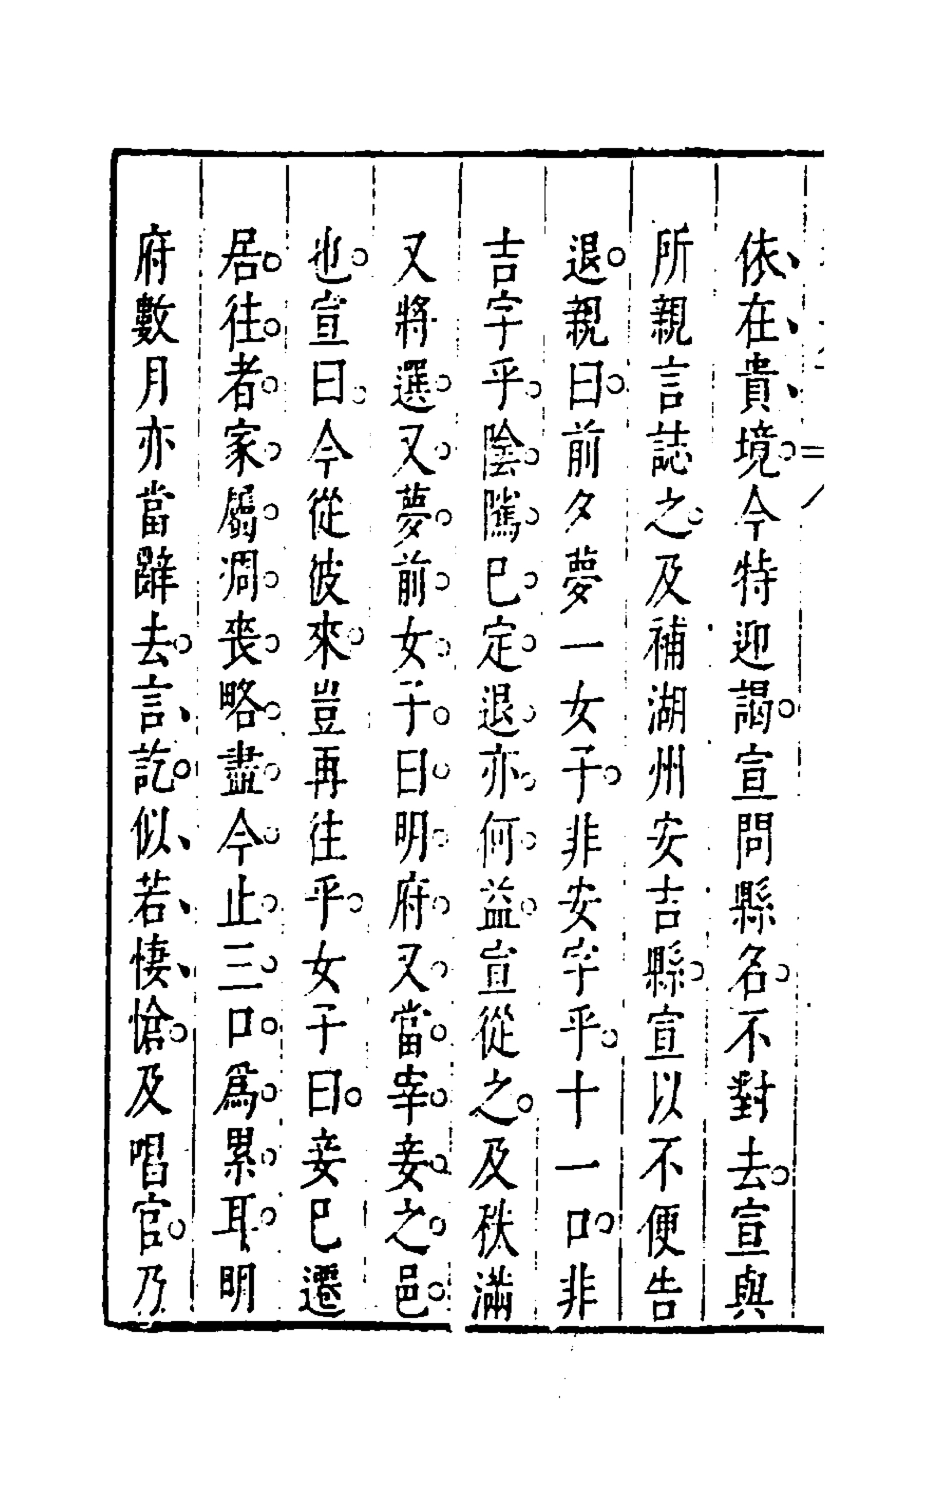 依在貴境今特迎謁宣問縣名不對去宣與
所親言誌之及補湖州安吉縣宣以不便告
退親曰前夕夢一女子非安字乎十一口非
吉字乎陰隲已定退亦何益宣從之及秩滿
又將選又夢前女子曰明府又當宰妾之邑
也宣曰今從彼來豈再往乎女子曰妾已遷
居往者家屬凋喪略盡今止三口爲累耳明
府數月亦當辭去言訖似若悽愴及唱官乃